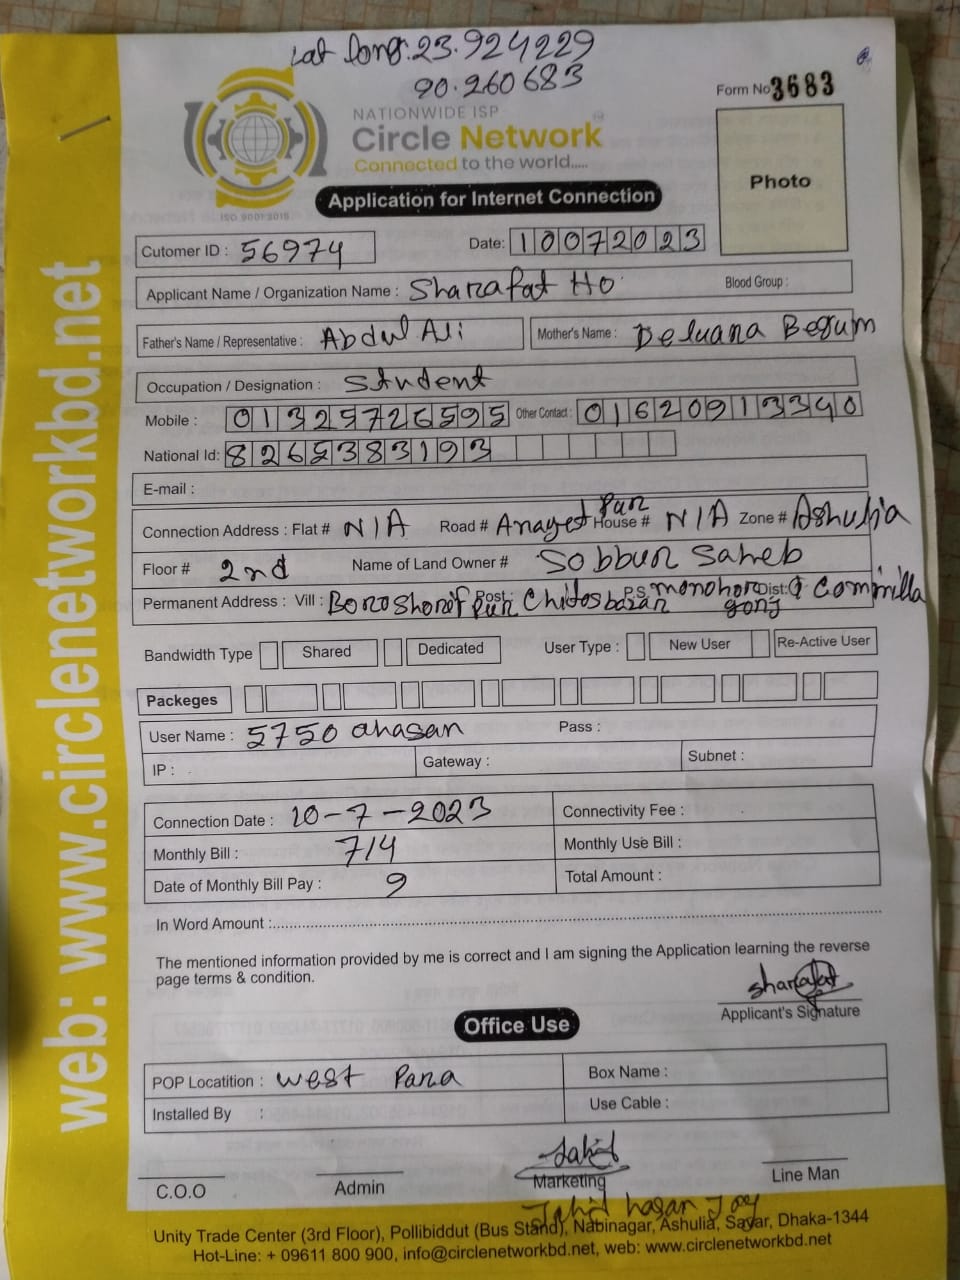 Lat Long: 23.924229
90.260683
Form No 3683
NATIONWIDE ISP
Circle Network
Connected to the world.....
ISO 9001:2015
Photo
Application for Internet Connection
Cutomer ID : 56974
Date: 10072023
Applicant Name / Organization Name : Sharafat Ho Blood Group :
Father's Name / Representative : Abdul Ali Mother's Name : Deluana Begum
Occupation / Designation : Student
Mobile : 01325726595 Other Contact : 01620913340
National Id: 8265383193
E-mail :
Connection Address : Flat # N/A Road # Anayet Pur House # N/A Zone # Ashulia
Floor # 2nd Name of Land Owner # Sobbur Saheb
Permanent Address : Vill : Boroshorif Pur Post : Chitosbazar P.S. monohor gonj Dist: Commilla
Bandwidth Type Shared Dedicated User Type : New User Re-Active User
Packeges
User Name : 5750 ahasan Pass :
IP : Gateway : Subnet :
Connection Date : 10-7-2023 Connectivity Fee :
Monthly Bill : 714 Monthly Use Bill :
Date of Monthly Bill Pay : 9 Total Amount :
In Word Amount :
The mentioned information provided by me is correct and I am signing the Application learning the reverse
page terms & condition.
sharafat
Applicant's Signature
Office Use
POP Locatition : West Para Box Name :
Installed By : Use Cable :
Jahid
C.O.O Admin Marketing Line Man
Jahid hasan Joy
Unity Trade Center (3rd Floor), Pollibiddut (Bus Stand), Nabinagar, Ashulia, Savar, Dhaka-1344
Hot-Line: + 09611 800 900, info@circlenetworkbd.net, web: www.circlenetworkbd.net
web: www.circlenetworkbd.net